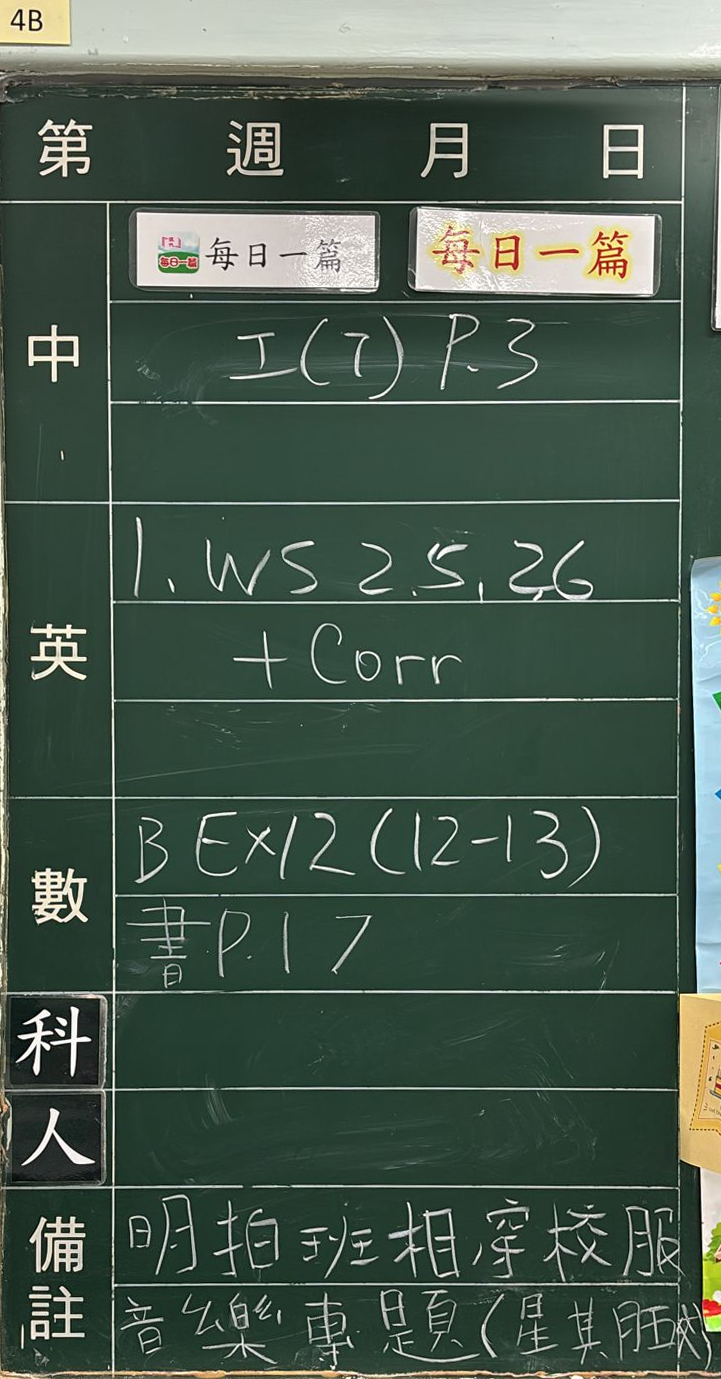 4B
第 週 月 日
中
每日一篇 每日一篇 每日一篇
工(7) P.3
英
1. WS 2.5, 2.6
+ Corr
數
B Ex12 (12-13)
書P.17
科
人
備註
明拍班相穿校服
音樂專題(星期五)